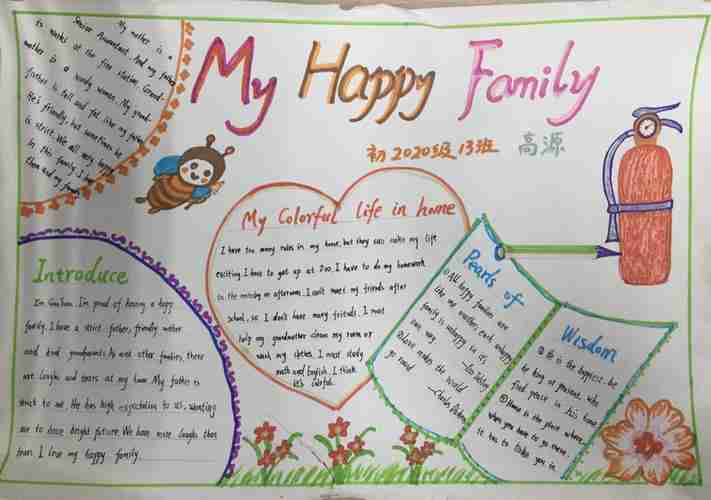 My Happy Family
初2020级13班 高源
My mother is a
Senior Accountant. And my father
works at the fire station. Grand-
mother is a woman. My grand-
father is tall and fat like my father.
He's friendly, but sometimes he
is strict. We all very happy
in this family. I love
them and my family.
My Colorful life in home
I have too many rules in my home, but they can make my life
exciting. I have to get up at 7:00. I have to do my homework
in the morning or afternoon. I can't meet my friends after
school, so I don't have many friends. I must
help my grandmother clean my room or
wash my clothes. I must study
math and English. I think
it's colorful.
Introduce
I'm GaoYuan. I'm proud of having a happy
family. I have a strict father, friendly mother
and kind grandparents. As most other families, there
are laughs and tears at my home. My father is
strict to me. He has high expectation to us, wanting
me to have bright future. We have more laughs than
tears. I love my happy family.
Pearls of
①All happy families are
like one another, each unhappy
family is unhappy in its
own way.
②Love makes the world
go round.
Wisdom
①He is the happiest, be
he king or peasant, who
find peace in his home
②Home is the place where,
when you have to go there,
it has to take you in.